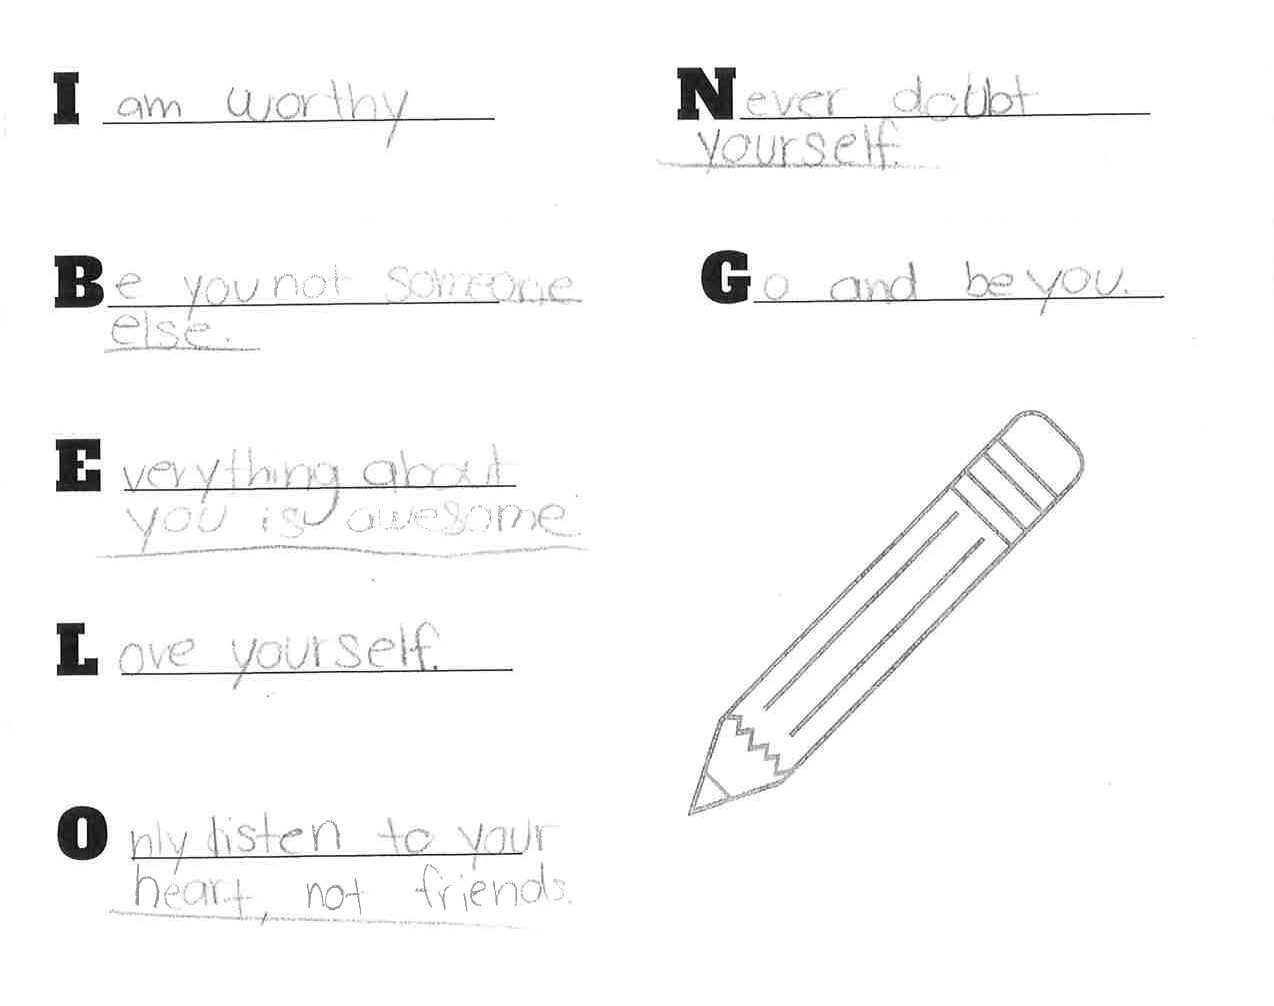 I am worthy
Be you not someone
else.
Everything about
you is awesome
Love yourself.
Only listen to your
heart, not friends.
Never doubt
yourself.
Go and be you.